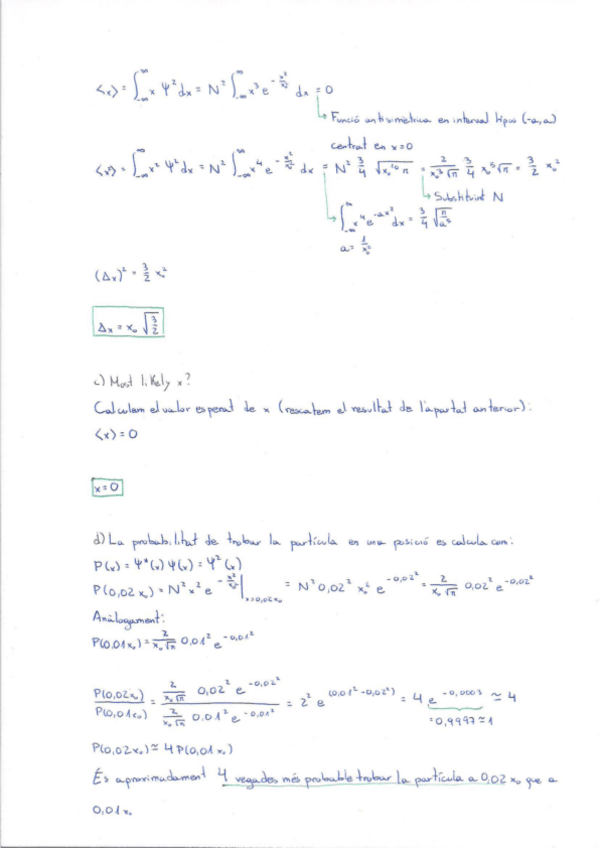 ⟨x⟩ = ∫_{-∞}^{∞} x Ψ² dx = N² ∫_{-∞}^{∞} x³ e^{-x²/x₀²} dx = 0
↳ Funció antisimètrica en interval tipus (-a,a)
centrat en x=0
⟨x²⟩ = ∫_{-∞}^{∞} x² Ψ² dx = N² ∫_{-∞}^{∞} x⁴ e^{-x²/x₀²} dx = N² 3/4 √(x₀¹⁰ π) = 2/(x₀³√π) 3/4 x₀⁵ √π = 3/2 x₀²
↳ Substituint N
↳ ∫_{-∞}^{∞} x⁴ e^{-ax²} dx = 3/4 √(π/a⁵)
a = 1/x₀²
(Δx)² = 3/2 x₀²
Δx = x₀ √(3/2)
c) Most likely x?
Calculem el valor esperat de x (rescatem el resultat de l'apartat anterior):
⟨x⟩ = 0
x=0
d) La probabilitat de trobar la partícula en una posició es calcula com:
P(x) = Ψ*(x) Ψ(x) = Ψ²(x)
P(0,02x₀) = N² x² e^{-x²/x₀²} |_{x=0,02x₀} = N² 0,02² x₀² e^{-0,02²} = 2/(x₀√π) 0,02² e^{-0,02²}
Anàlogament:
P(0,01x₀) = 2/(x₀√π) 0,01² e^{-0,01²}
P(0,02x₀)/P(0,01x₀) = (2/(x₀√π) 0,02² e^{-0,02²})/(2/(x₀√π) 0,01² e^{-0,01²}) = 2² e^{(0,01²-0,02²)} = 4 e^{-0,0003} ≃ 4
=0,9997≃1
P(0,02x₀) ≃ 4 P(0,01x₀)
És aproximadament 4 vegades més probable trobar la partícula a 0,02 x₀ que a
0,01x₀